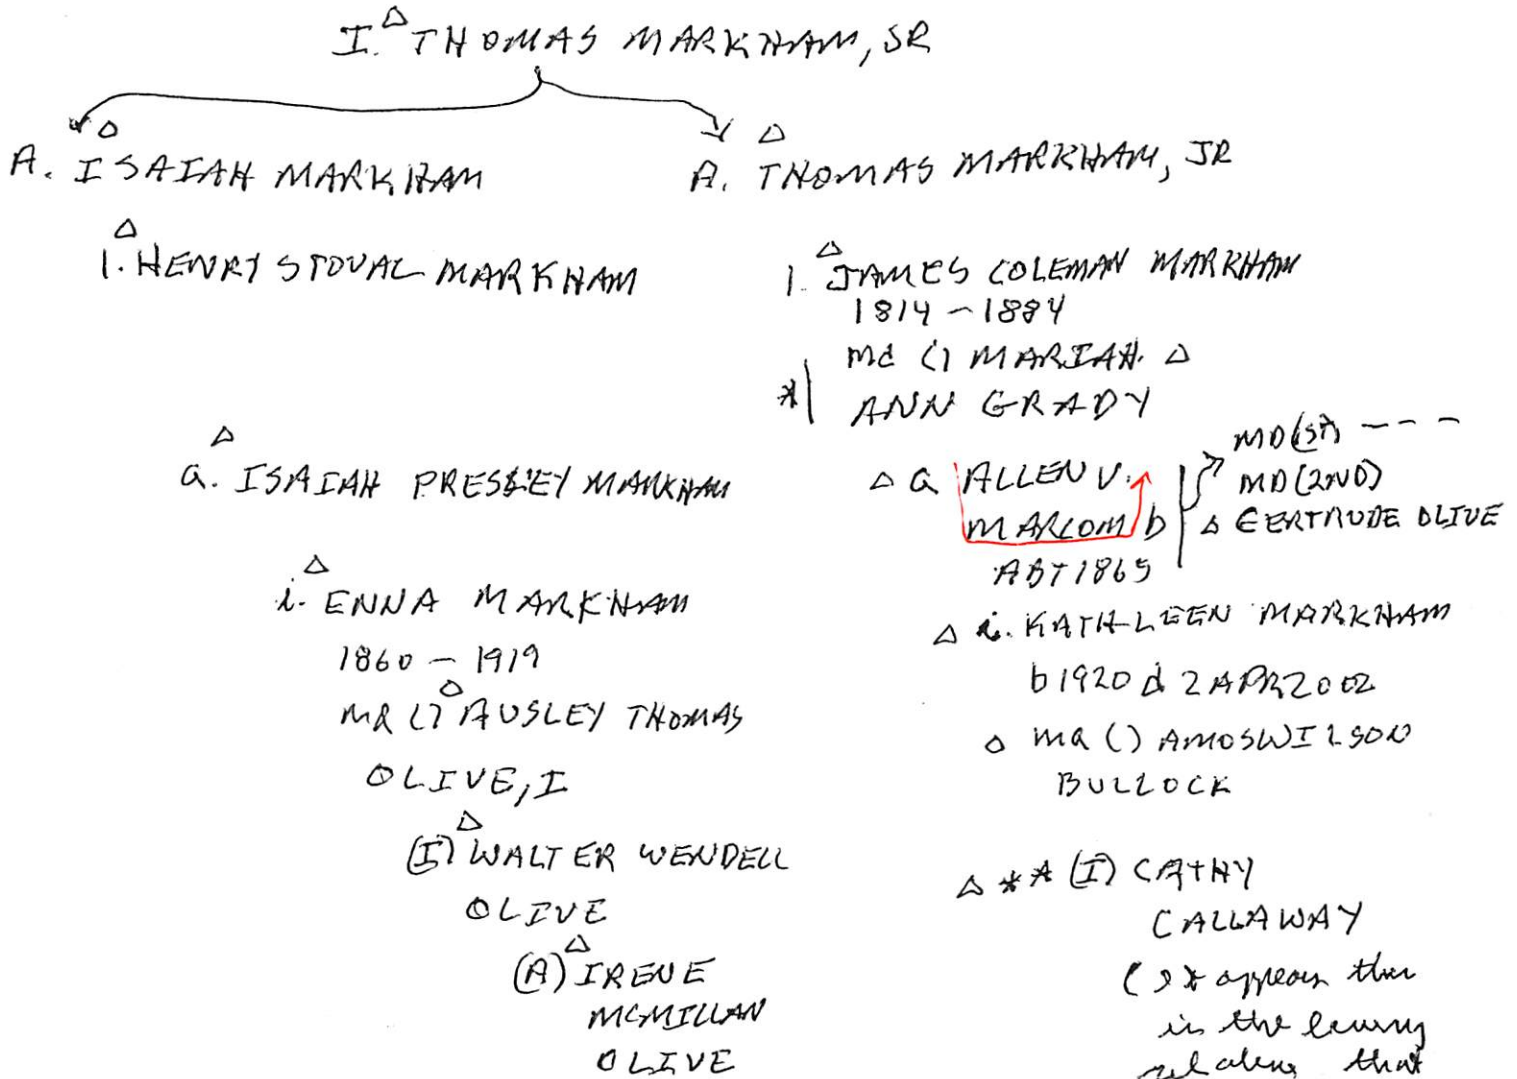 I. THOMAS MARKHAM, SR
A. ISAIAH MARKHAM
1. HENRY STOVAL MARKHAM
a. ISAIAH PRESLEY MARKHAM
i. ENNA MARKHAM
1860 - 1919
MR () AUSLEY THOMAS
OLIVE, I
(I) WALTER WENDELL
OLIVE
(A) IRENE
MCMILLAN
OLIVE
A. THOMAS MARKHAM, JR
1. JAMES COLEMAN MARKHAM
1814 - 1884
md () MARIAH
* ANN GRADY
a ALLEN V.
MARCOM b
ABT 1865
MD (1ST) - - -
MD (2ND)
GERTRUDE OLIVE
i. KATHLEEN MARKHAM
b 1920 d 2 APR 2002
ma () AMOS WILSON
BULLOCK
** (I) CATHY
CALLAWAY
(It appears
in the
that